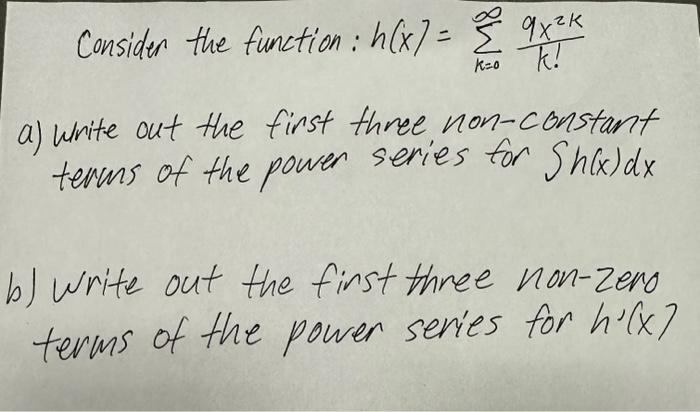 Consider the function: h(x) = ∞ Σ k=0 9x^2k / k!
a) Write out the first three non-constant
terms of the power series for ∫h(x)dx
b) Write out the first three non-zero
terms of the power series for h'(x)